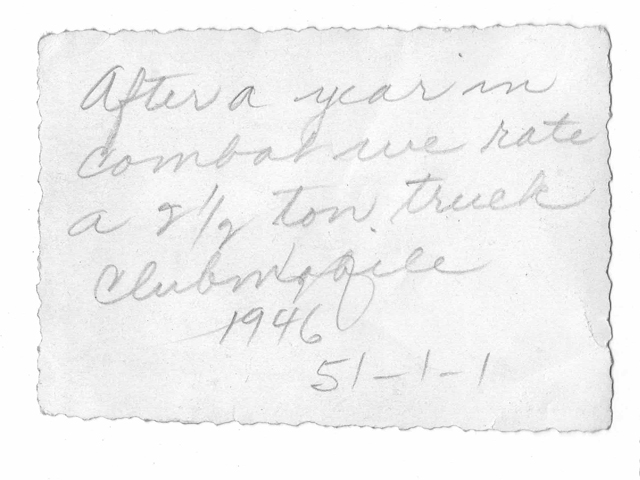 After a year in
combat we rate
a 2 1/2 ton truck
Clubmobile
1946
51-1-1